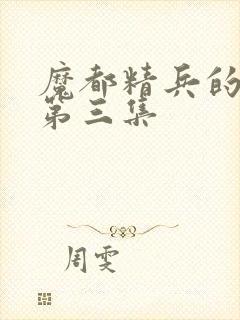 魔都精兵的
第三集
周雯